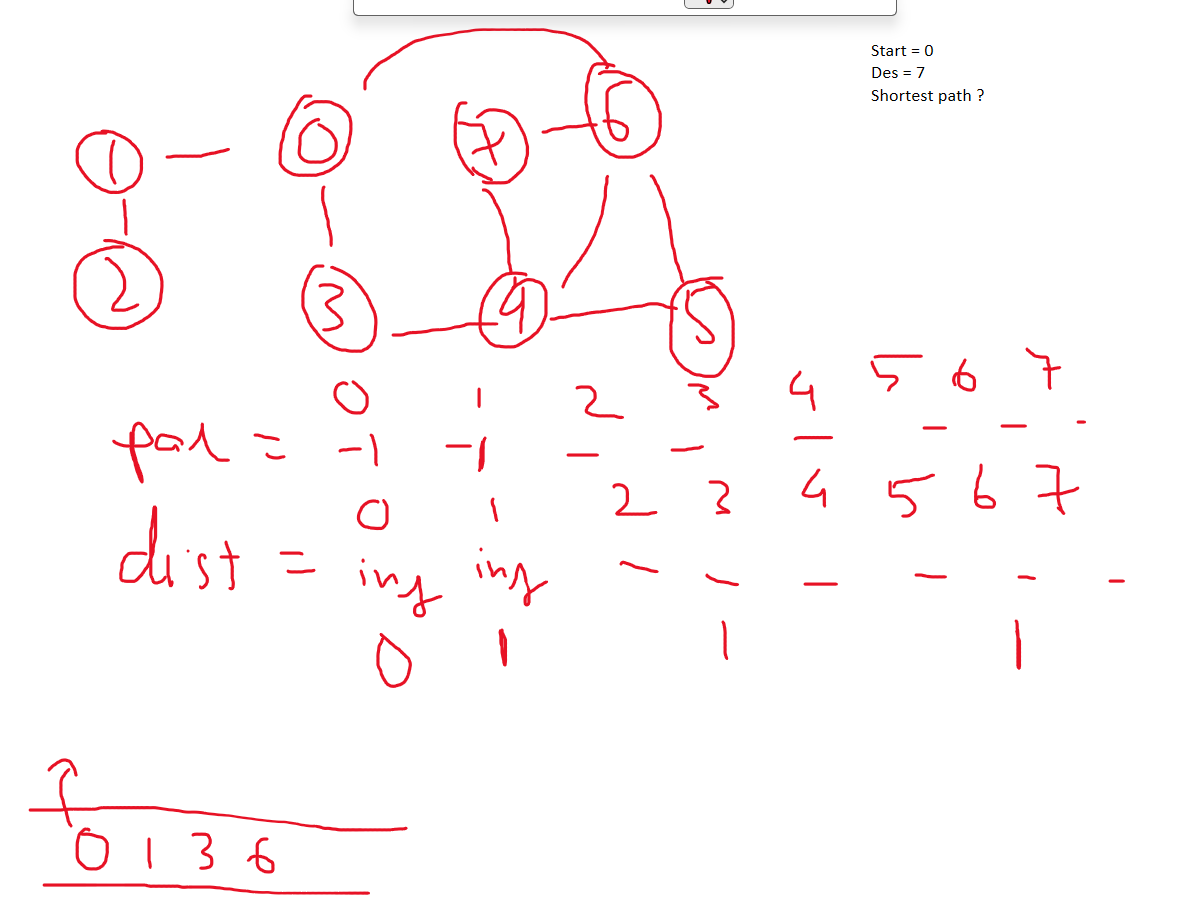 Start = 0
Des = 7
Shortest path ?
1 0 7 6
2 3 4 5
0 1 2 3 4 5 6 7
par = -1 -1 - - - - - -
0 1 2 3 4 5 6 7
dist = inf inf - - - - - -
0 1 1 1
0 1 3 6